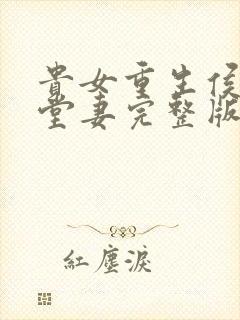 貴女重生侯
堂妻完整版
紅塵淚